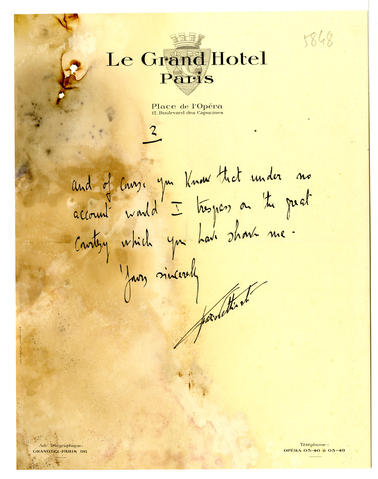 5848
Le Grand Hotel
Paris
Place de l'Opéra
12, Boulevard des Capucines
2
and of course you know that under no
account would I trespass on the great
courtesy which you have shown me.
Yours sincerely
Adr. Télégraphique:
GRANOTEL-PARIS
Téléphone:
OPÉRA 05-40 à 05-49